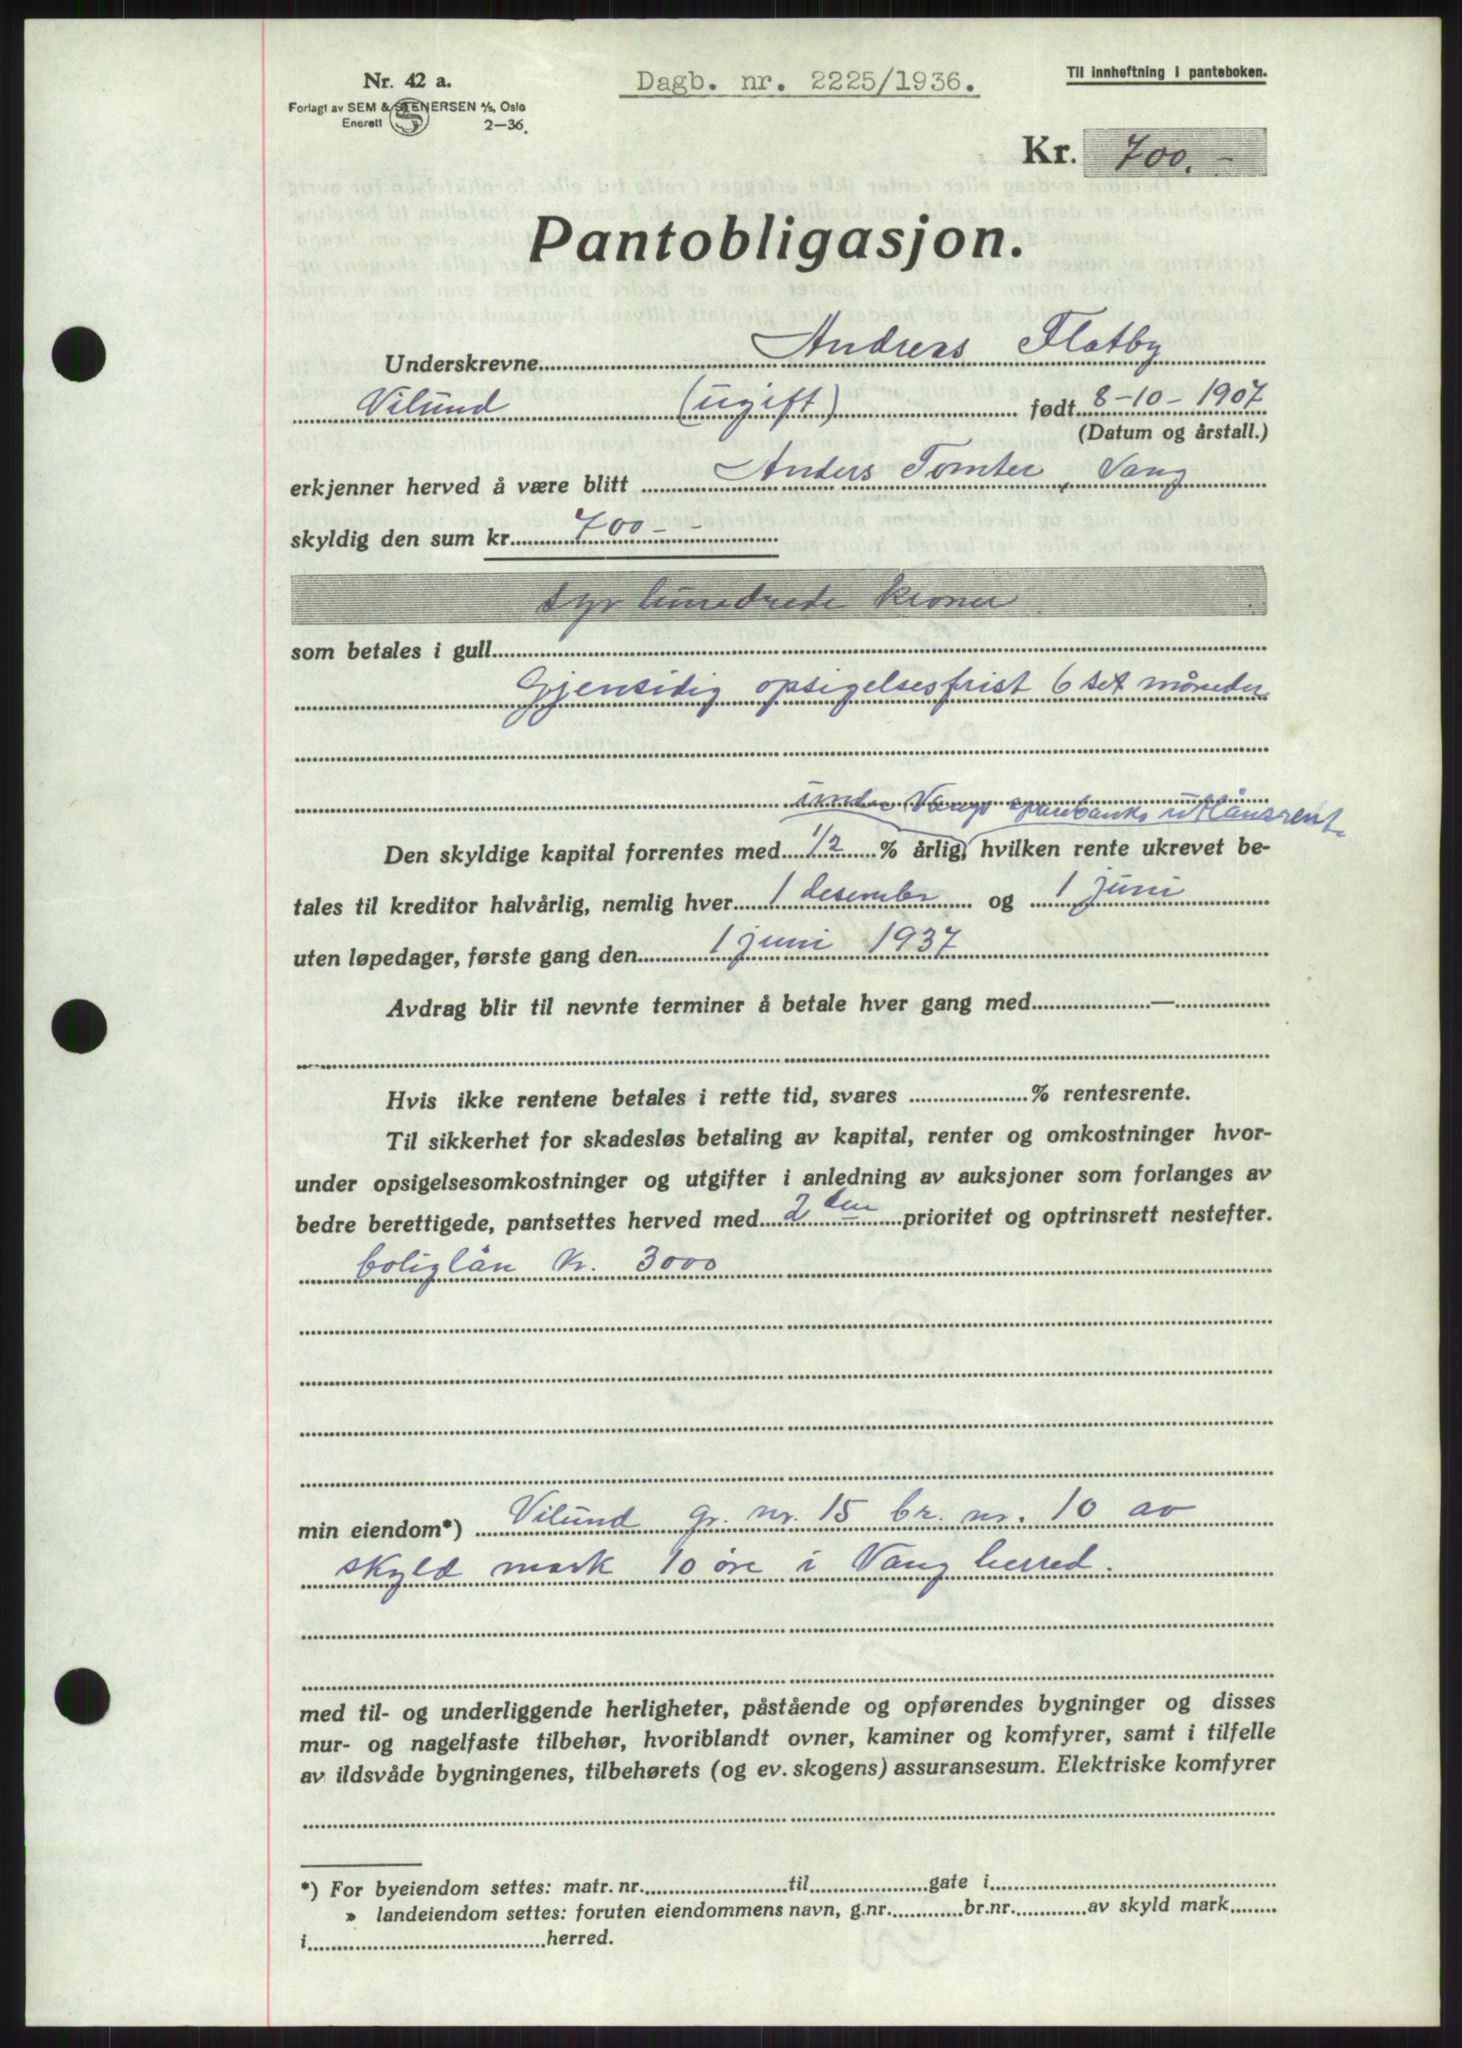 Nr. 42 a.
Forlagt av SEM & STENERSEN A/S, Oslo
Enerett 2—36.
Dagb. nr. 2225/1936.
Til innheftning i panteboken.
Kr. 700.-
Pantobligasjon.
Underskrevne Andreas Flatby
Vilund (ugift) født 8-10-1907
(Datum og årstall.)
erkjenner herved å være blitt Anders Tomter, Vang
skyldig den sum kr. 700 - -
syv hundrede kroner
som betales i gull
Gjensidig opsigelsesfrist 6 sex måneder.
under Vangs sparebanks utlånsrent.
Den skyldige kapital forrentes med 1/2 % årlig, hvilken rente ukrevet be-
tales til kreditor halvårlig, nemlig hver 1 desember og 1 juni
uten løpedager, første gang den 1 juni 1937
Avdrag blir til nevnte terminer å betale hver gang med —
Hvis ikke rentene betales i rette tid, svares % rentesrente.
Til sikkerhet for skadesløs betaling av kapital, renter og omkostninger hvor-
under opsigelsesomkostninger og utgifter i anledning av auksjoner som forlanges av
bedre berettigede, pantsettes herved med 2 den prioritet og optrinsrett nestefter.
boliglån kr. 3000
min eiendom*) Vilund gr. nr. 15 br. nr. 10 av
skyld mark 10 øre i Vang herred.
med til- og underliggende herligheter, påstående og opførendes bygninger og disses
mur- og nagelfaste tilbehør, hvoriblandt ovner, kaminer og komfyrer, samt i tilfelle
av ildsvåde bygningenes, tilbehørets (og ev. skogens) assuransesum. Elektriske komfyrer
*) For byeiendom settes: matr. nr. til gate i
» landeiendom settes: foruten eiendommens navn, g.nr. br.nr. av skyld mark
i herred.